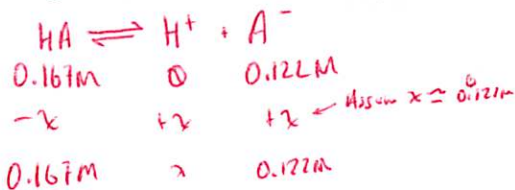 HA ⇌ H⁺ + A⁻
0.167M 0 0.122M
-x +x +x ← Assum x ≃ 0
0.167M x 0.122M